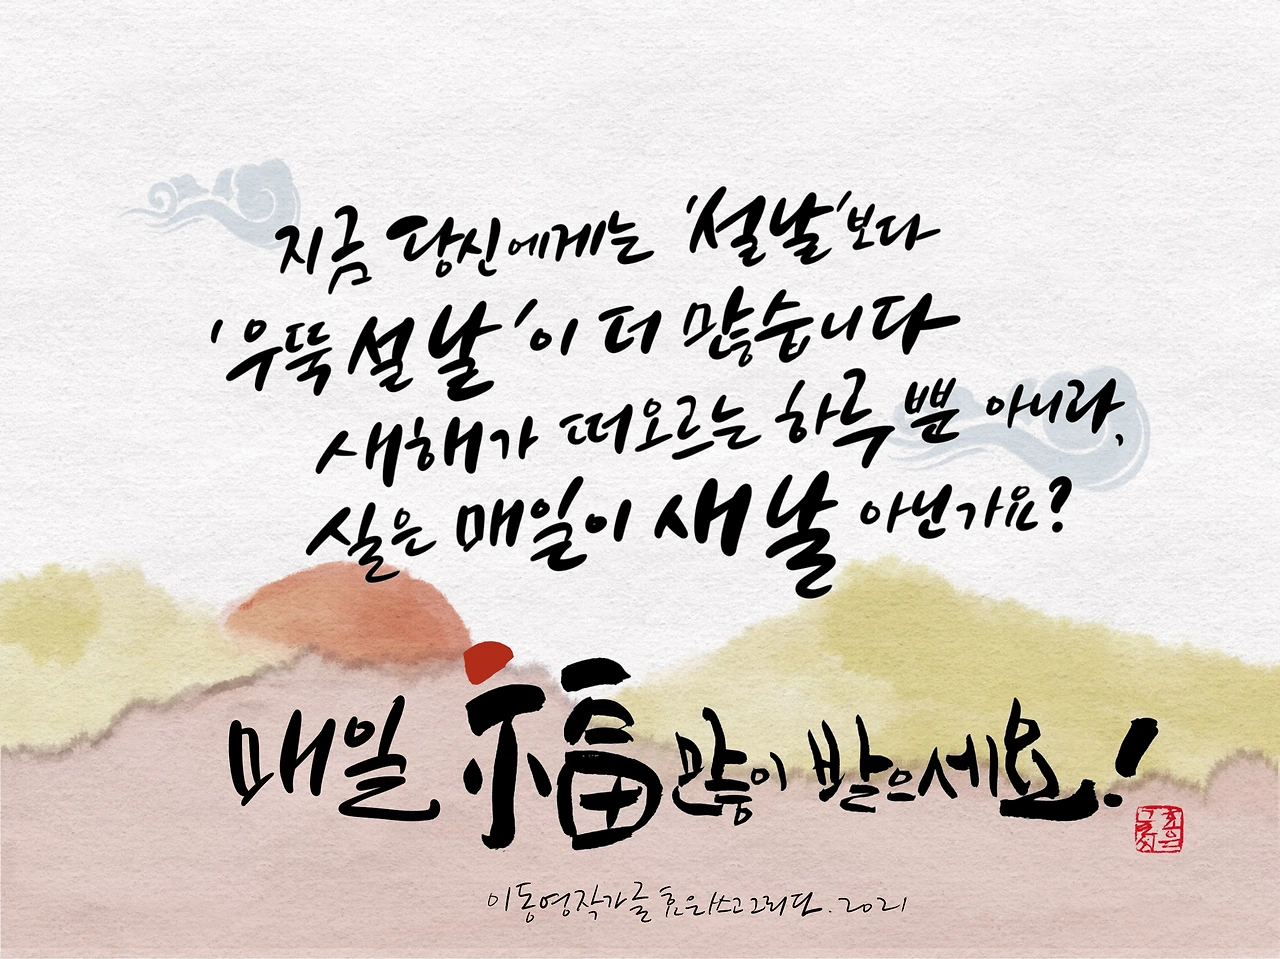 지금 당신에게는 '설날'보다
'우뚝설날'이 더 많습니다
새해가 떠오르는 하루 뿐 아니라,
실은 매일이 새날 아닌가요?
매일 福 많이 받으세요!
이동영작가글 효은쓰고그리다. 2021